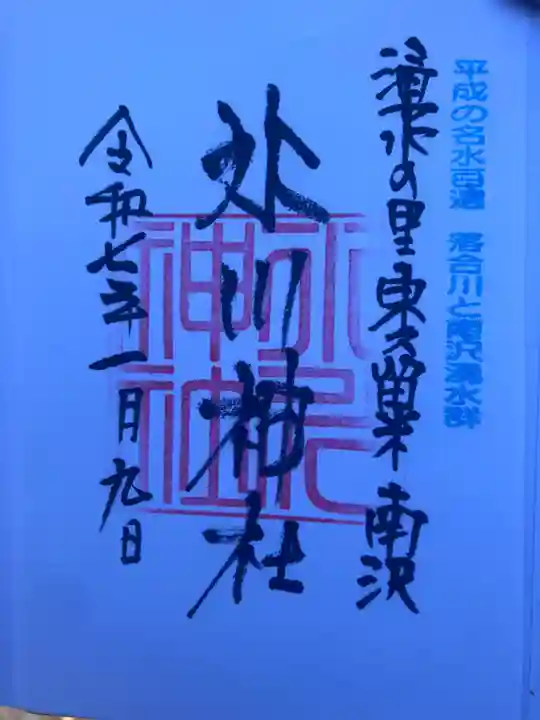 平成の名水百選 落合川と南沢湧水群
湧水の里東久留米 南沢
氷川神社
氷川神社
令和七年一月九日